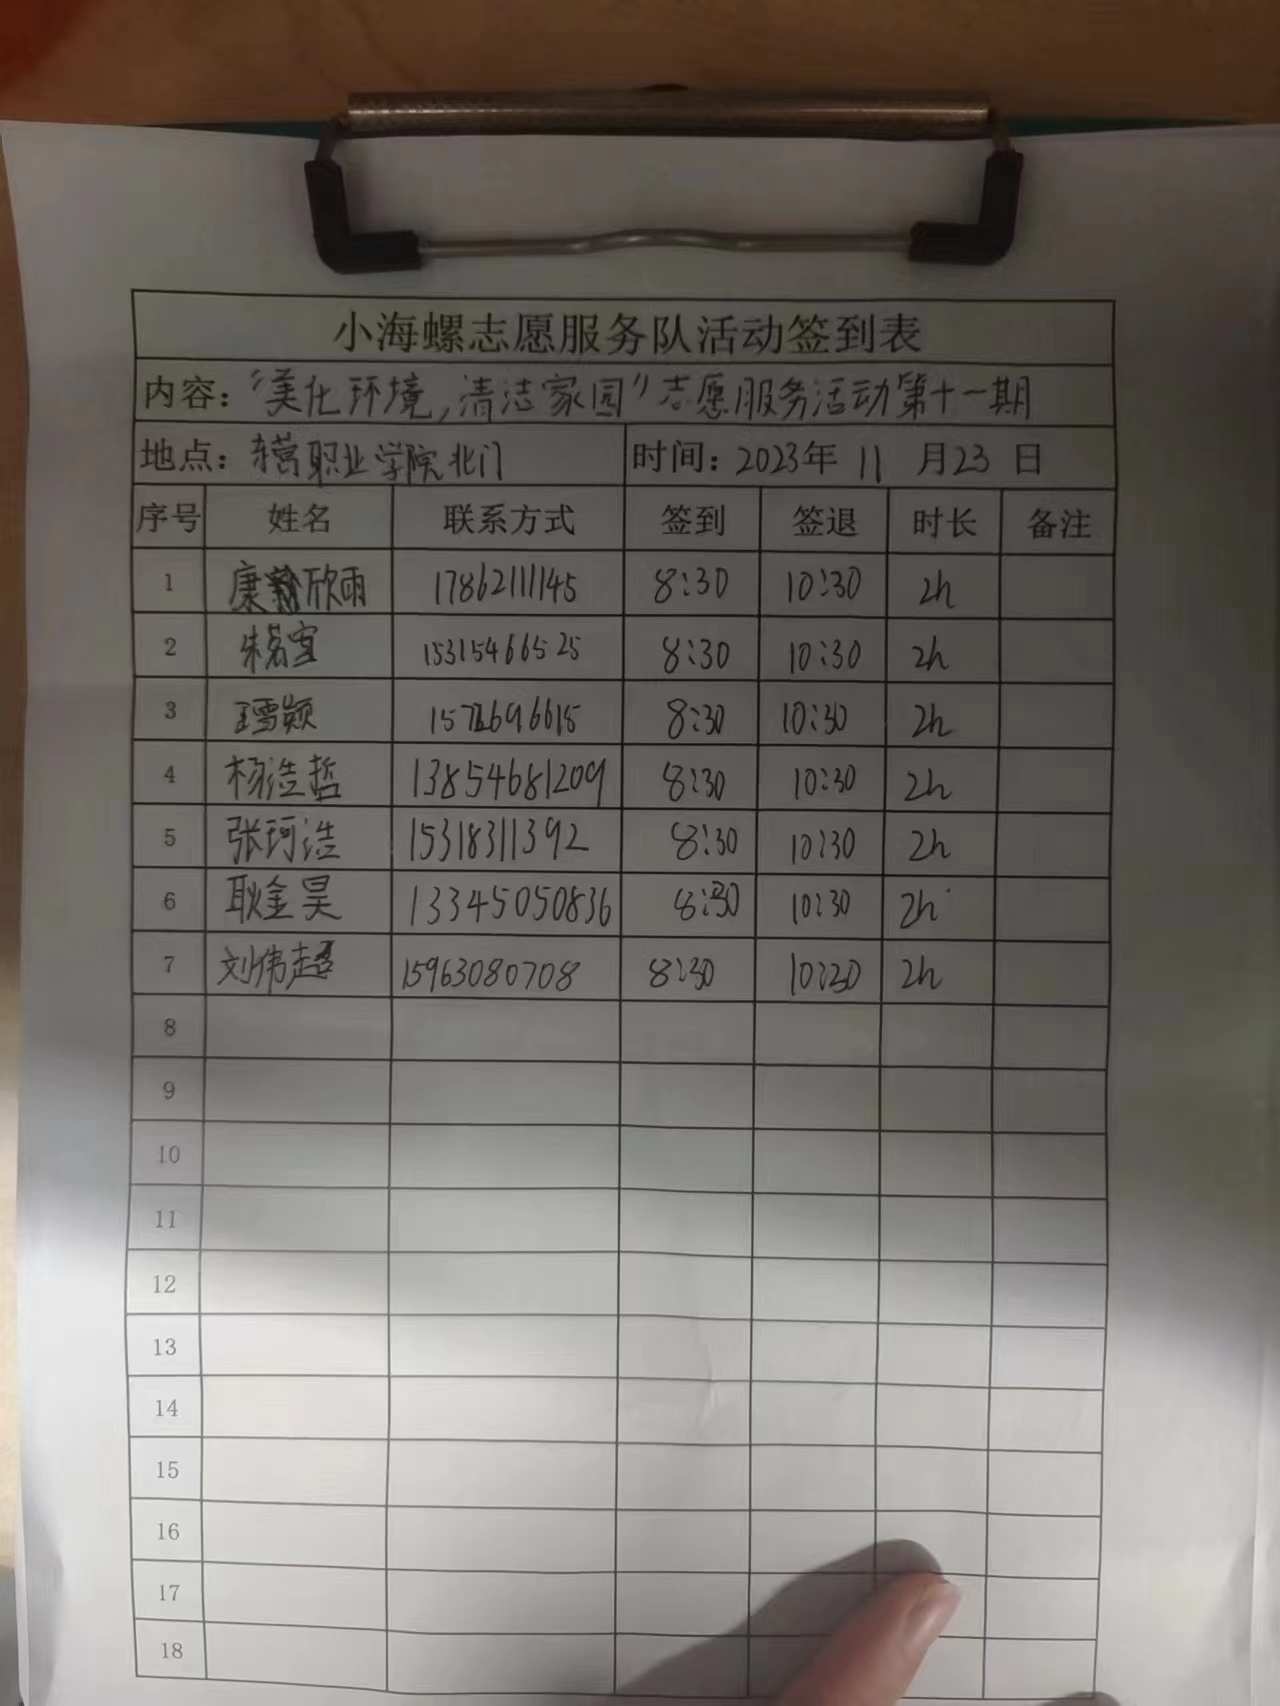 小海螺志愿服务队活动签到表
内容：“美化环境，清洁家园”志愿服务活动第十一期
地点：东营职业学院北门 时间：2023年 11 月23 日
序号 姓名 联系方式 签到 签退 时长 备注
1 康欣雨 17862111145 8:30 10:30 2h
2 朱茗宣 15315466525 8:30 10:30 2h
3 王雪颖 8:30 10:30 2h
4 杨浩哲 13854681209 8:30 10:30 2h
5 张珂浩 15318311392 8:30 10:30 2h
6 耿金昊 13345050836 8:30 10:30 2h
7 刘伟超 15963080708 8:30 10:30 2h
8
9
10
11
12
13
14
15
16
17
18